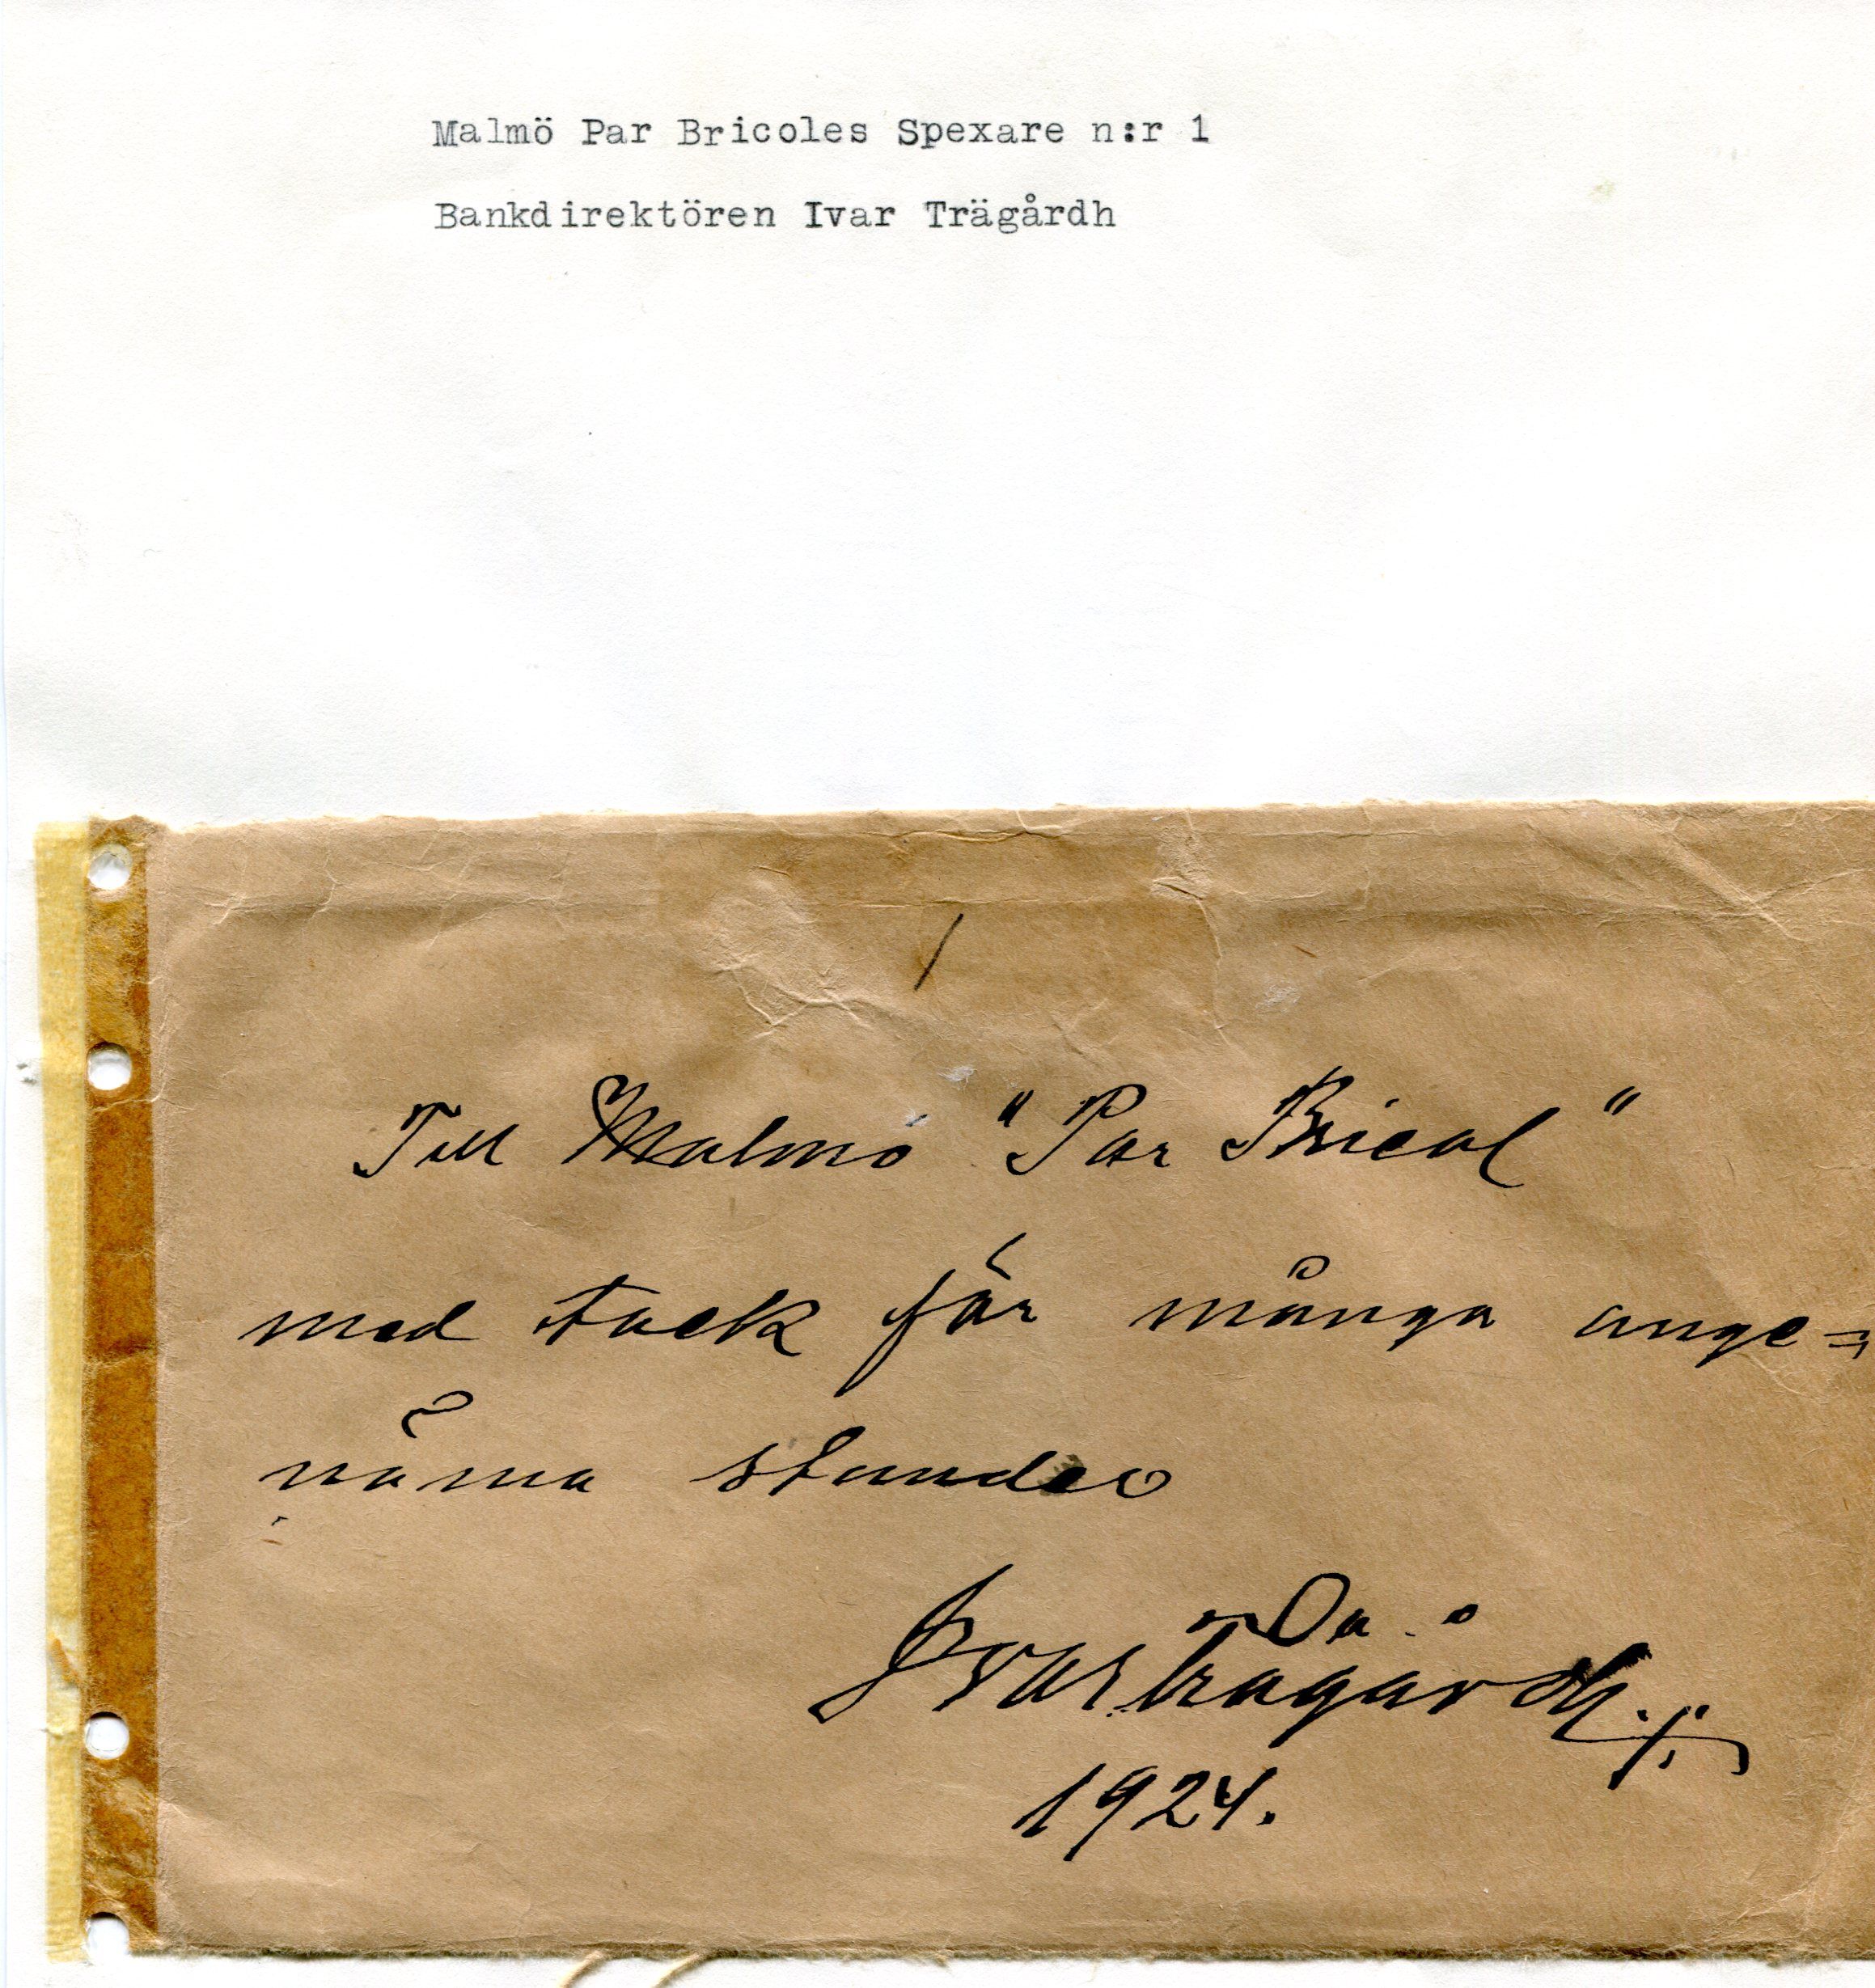 Malmö Par Bricoles Spexare n:r 1
Bankdirektören Ivar Trägårdh
/
Till Malmö "Par Bricol"
med tack för många ange=
näma stunder
Ivar Trägårdh.
1924.